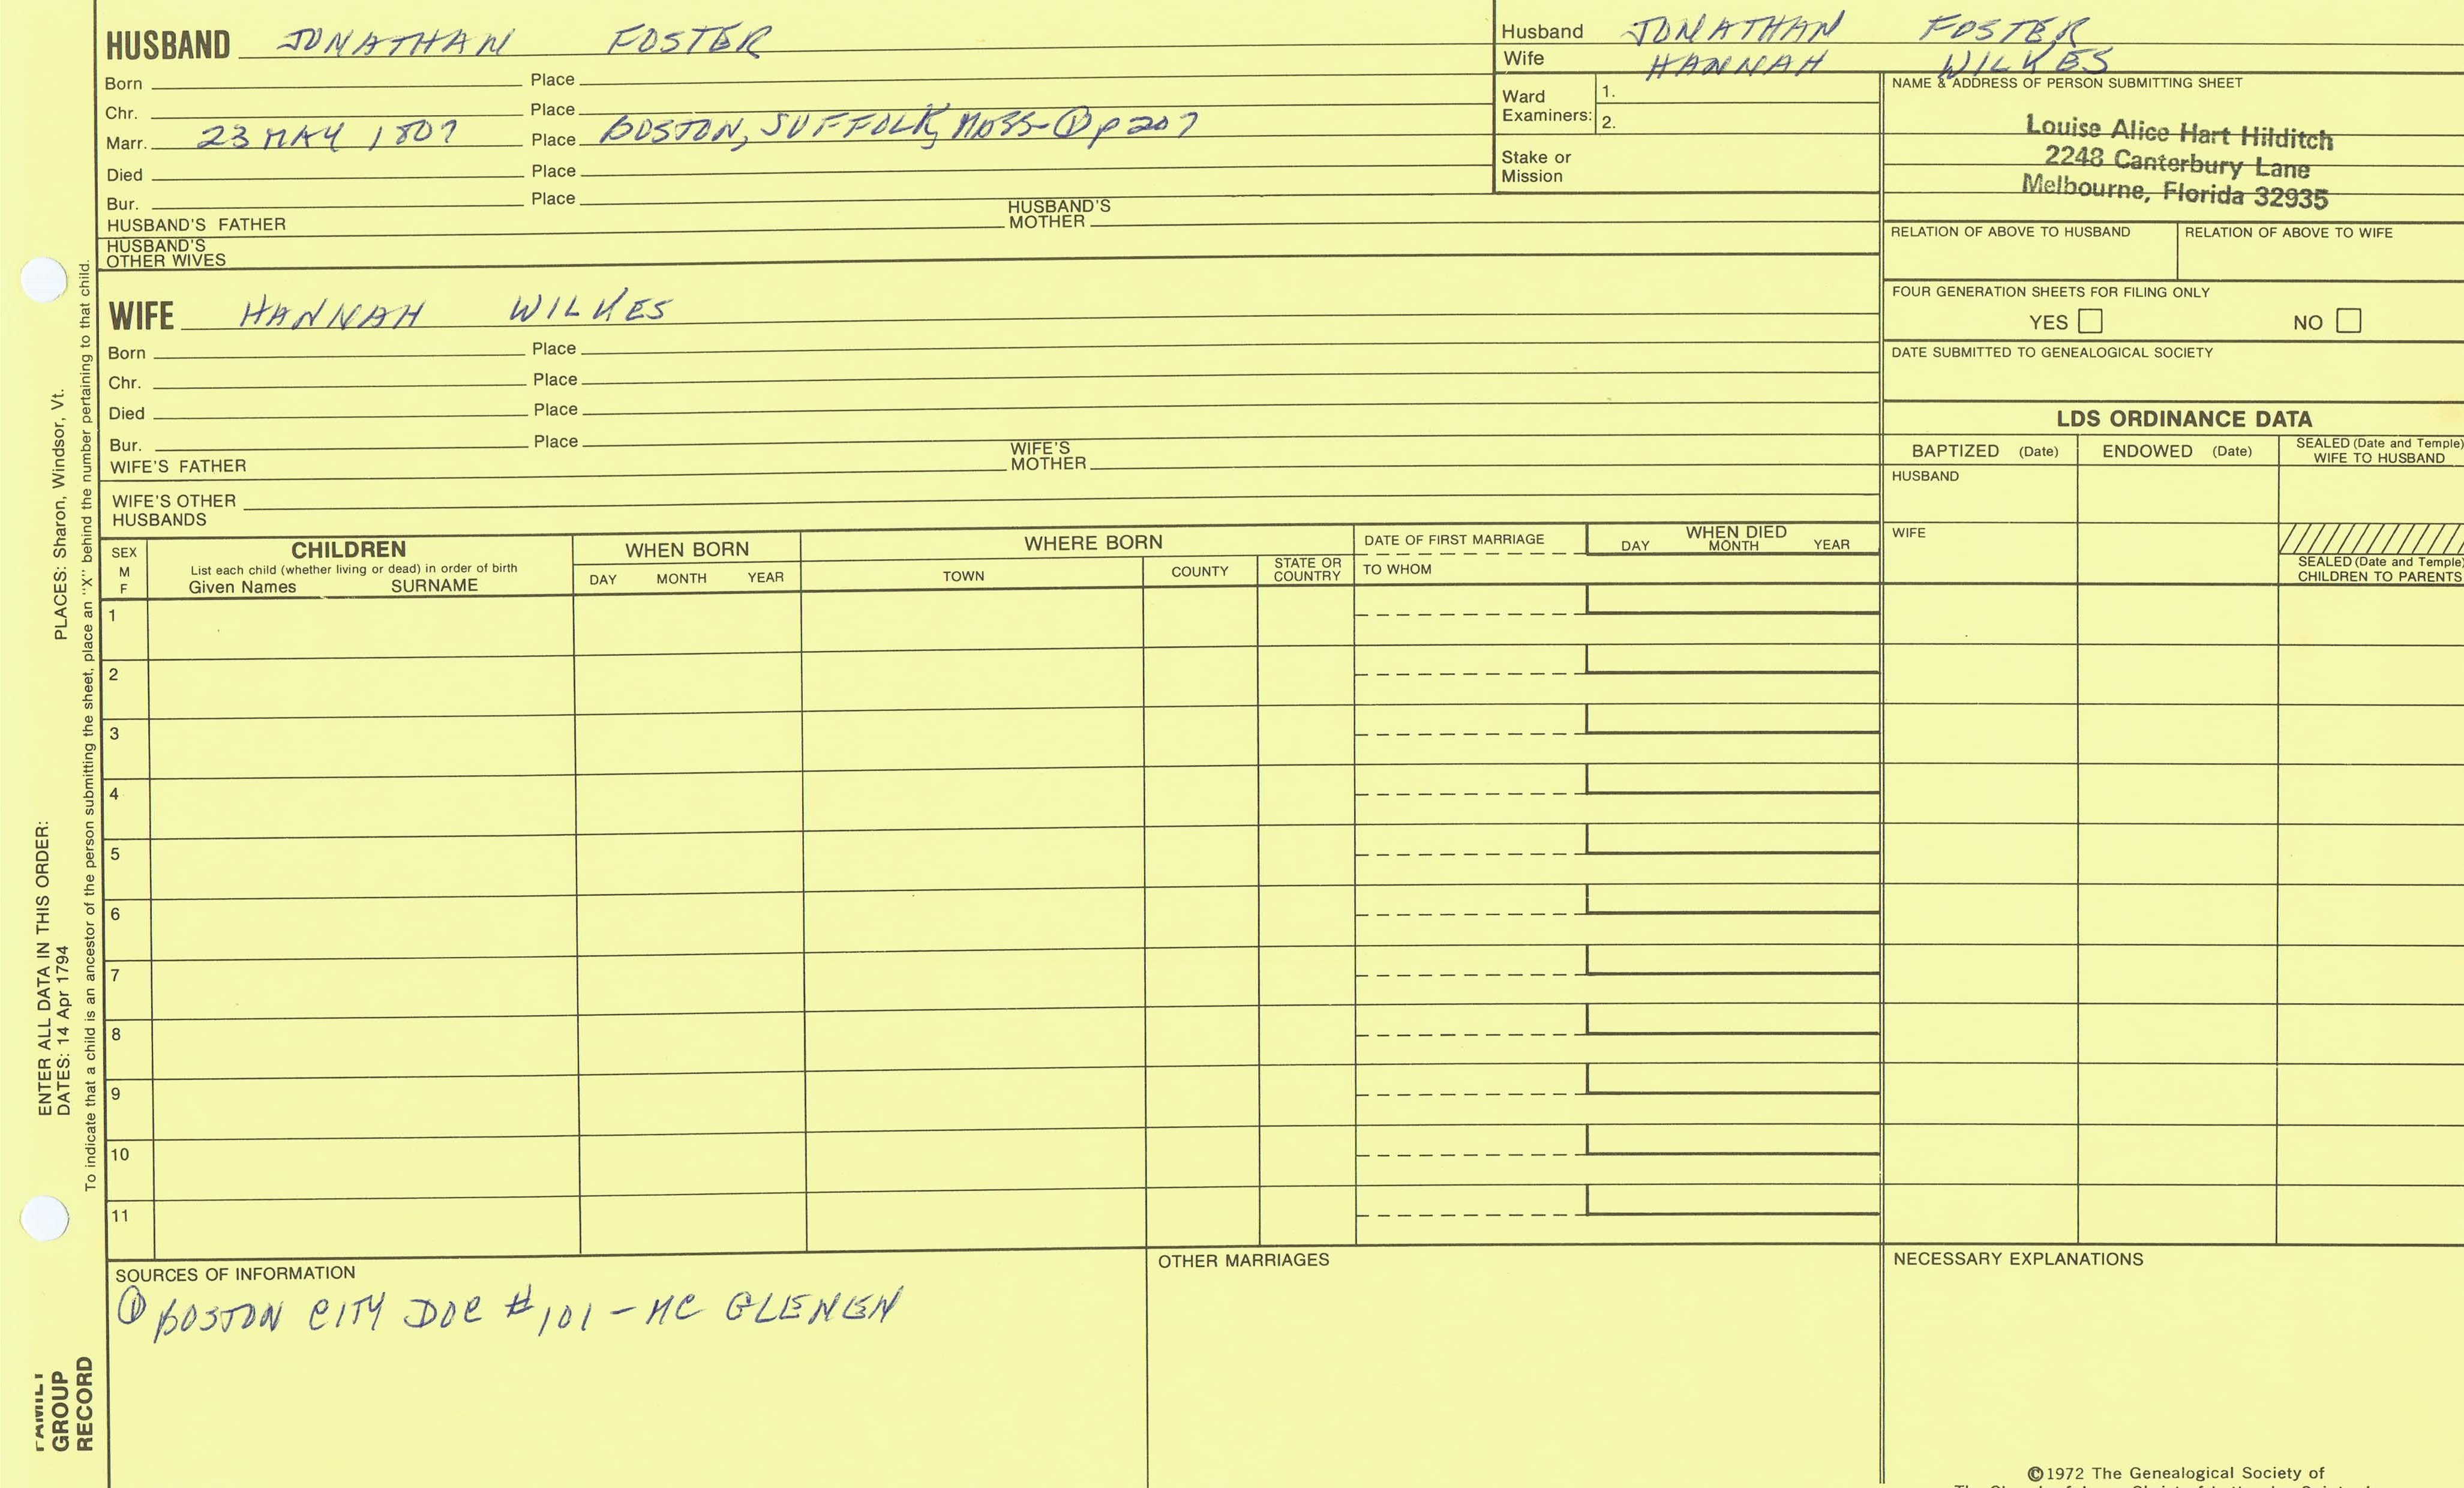 HUSBAND JONATHAN FOSTER
Born Place
Chr. Place
Marr. 23 MAY 1807 Place BOSTON, SUFFOLK, MASS-① p 207
Died Place
Bur. Place
HUSBAND'S FATHER HUSBAND'S MOTHER
HUSBAND'S OTHER WIVES
Husband JONATHAN FOSTER
Wife HANNAH WILKES
Ward Examiners: 1.
2.
Stake or Mission
NAME & ADDRESS OF PERSON SUBMITTING SHEET
Louise Alice Hart Hilditch
2248 Canterbury Lane
Melbourne, Florida 32935
RELATION OF ABOVE TO HUSBAND RELATION OF ABOVE TO WIFE
FOUR GENERATION SHEETS FOR FILING ONLY
YES NO
DATE SUBMITTED TO GENEALOGICAL SOCIETY
WIFE HANNAH WILKES
Born Place
Chr. Place
Died Place
Bur. Place
WIFE'S FATHER WIFE'S MOTHER
WIFE'S OTHER HUSBANDS
LDS ORDINANCE DATA
BAPTIZED (Date) ENDOWED (Date) SEALED (Date and Temple) WIFE TO HUSBAND
HUSBAND
WIFE
SEALED (Date and Temple) CHILDREN TO PARENTS
SEX M F
CHILDREN
List each child (whether living or dead) in order of birth
Given Names SURNAME
WHEN BORN
DAY MONTH YEAR
WHERE BORN
TOWN COUNTY STATE OR COUNTRY
DATE OF FIRST MARRIAGE
TO WHOM
WHEN DIED
DAY MONTH YEAR
1
2
3
4
5
6
7
8
9
10
11
SOURCES OF INFORMATION
① BOSTON CITY DOC #101 - MC GLENEN
OTHER MARRIAGES
NECESSARY EXPLANATIONS
©1972 The Genealogical Society of
ENTER ALL DATA IN THIS ORDER:
DATES: 14 Apr 1794 PLACES: Sharon, Windsor, Vt.
To indicate that a child is an ancestor of the person submitting the sheet, place an "X" behind the number pertaining to that child.
FAMILY
GROUP
RECORD